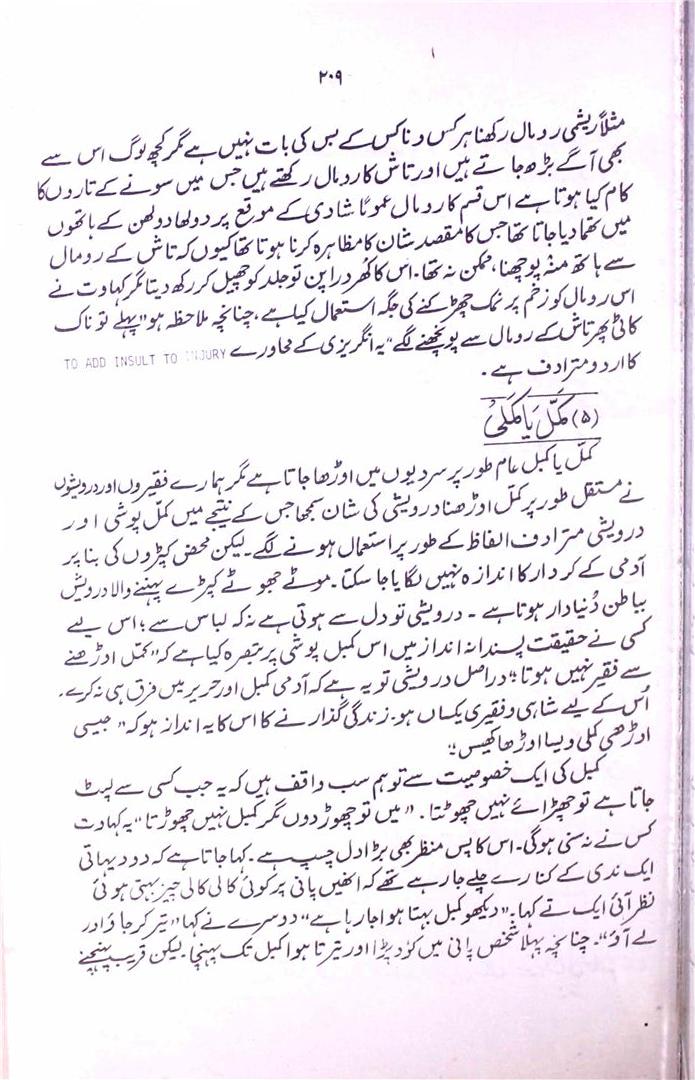 ۲۰۹
مثلاً ریشمی رومال رکھنا ہر کس و ناکس کے بس کی بات نہیں ہے مگر کچھ لوگ اس سے
بھی آگے بڑھ جاتے ہیں اور تاش کا رومال رکھتے ہیں جس میں سونے کے تاروں کا
کام کیا ہوتا ہے اس قسم کا رومال عموماً شادی کے موقع پر دولھا دولھن کے ہاتھوں
میں تھما دیا جاتا تھا جس کا مقصد شان کا مظاہرہ کرنا ہوتا تھا کیوں کہ تاش کے رومال
سے ہاتھ منہ پوچھنا، ممکن نہ تھا۔ اس کا کھُردرا پن تو جلد کو چھیل کر رکھ دیتا مگر کہاوت نے
اس رومال کو زخم پر نمک چھڑکنے کی جگہ استعمال کیا ہے، چنانچہ ملاحظہ ہو "پہلے تو ناک
کاٹی پھر تاش کے رومال سے پونچھنے لگے" یہ انگریزی کے محاورے TO ADD INSULT TO INJURY
کا اردو مترادف ہے۔
(۵) کمّل یا کملی
کمّل یا کمبل عام طور پر سردیوں میں اوڑھا جاتا ہے مگر ہمارے فقیروں اور درویشوں
نے مستقل طور پر کمّل اوڑھنا درویشی کی شان سمجھا جس کے نتیجے میں کمّل پوشی اور
درویشی مترادف الفاظ کے طور پر استعمال ہونے لگے۔ لیکن محض کپڑوں کی بنا پر
آدمی کے کردار کا اندازہ نہیں لگایا جا سکتا۔ موٹے جھوٹے کپڑے پہننے والا درویش
بباطن دُنیا دار ہوتا ہے ۔ درویشی تو دل سے ہوتی ہے نہ کہ لباس سے؛ اس لیے
کسی نے حقیقت پسندانہ انداز میں اس کمبل پوشی پر تبصرہ کیا ہے کہ "کمّل اوڑھنے
سے فقیر نہیں ہوتا" دراصل درویشی تو یہ ہے کہ آدمی کمبل اور حریر میں فرق ہی نہ کرے۔
اُس کے لیے شاہی و فقیری یکساں ہو۔ زندگی گُذارنے کا اس کا یہ انداز ہو کہ "جیسی
اوڑھی کملی ویسا اوڑھا کھیس"؛
کمبل کی ایک خصوصیت سے تو ہم سب واقف ہیں کہ یہ جب کسی سے لپٹ
جاتا ہے تو چھڑائے نہیں چھوٹتا۔ "میں تو چھوڑ دوں مگر کمبل نہیں چھوڑتا" یہ کہاوت
کس نے نہ سنی ہوگی۔ اس کا پس منظر بھی بڑا دل چسپ ہے۔ کہا جاتا ہے کہ دو دیہاتی
ایک ندی کے کنارے چلے جا رہے تھے کہ انھیں پانی پر کوئی کالی کالی چیز بہتی ہوئی
نظر آئی ایک نے کہا۔ "دیکھو کمبل بہتا ہوا جا رہا ہے" دوسرے نے کہا "تیر کر جاؤ اور
لے آؤ"۔ چنانچہ پہلا شخص پانی میں کود پڑا اور تیرتا ہوا کمبل تک پہنچا۔ لیکن قریب پہنچنے